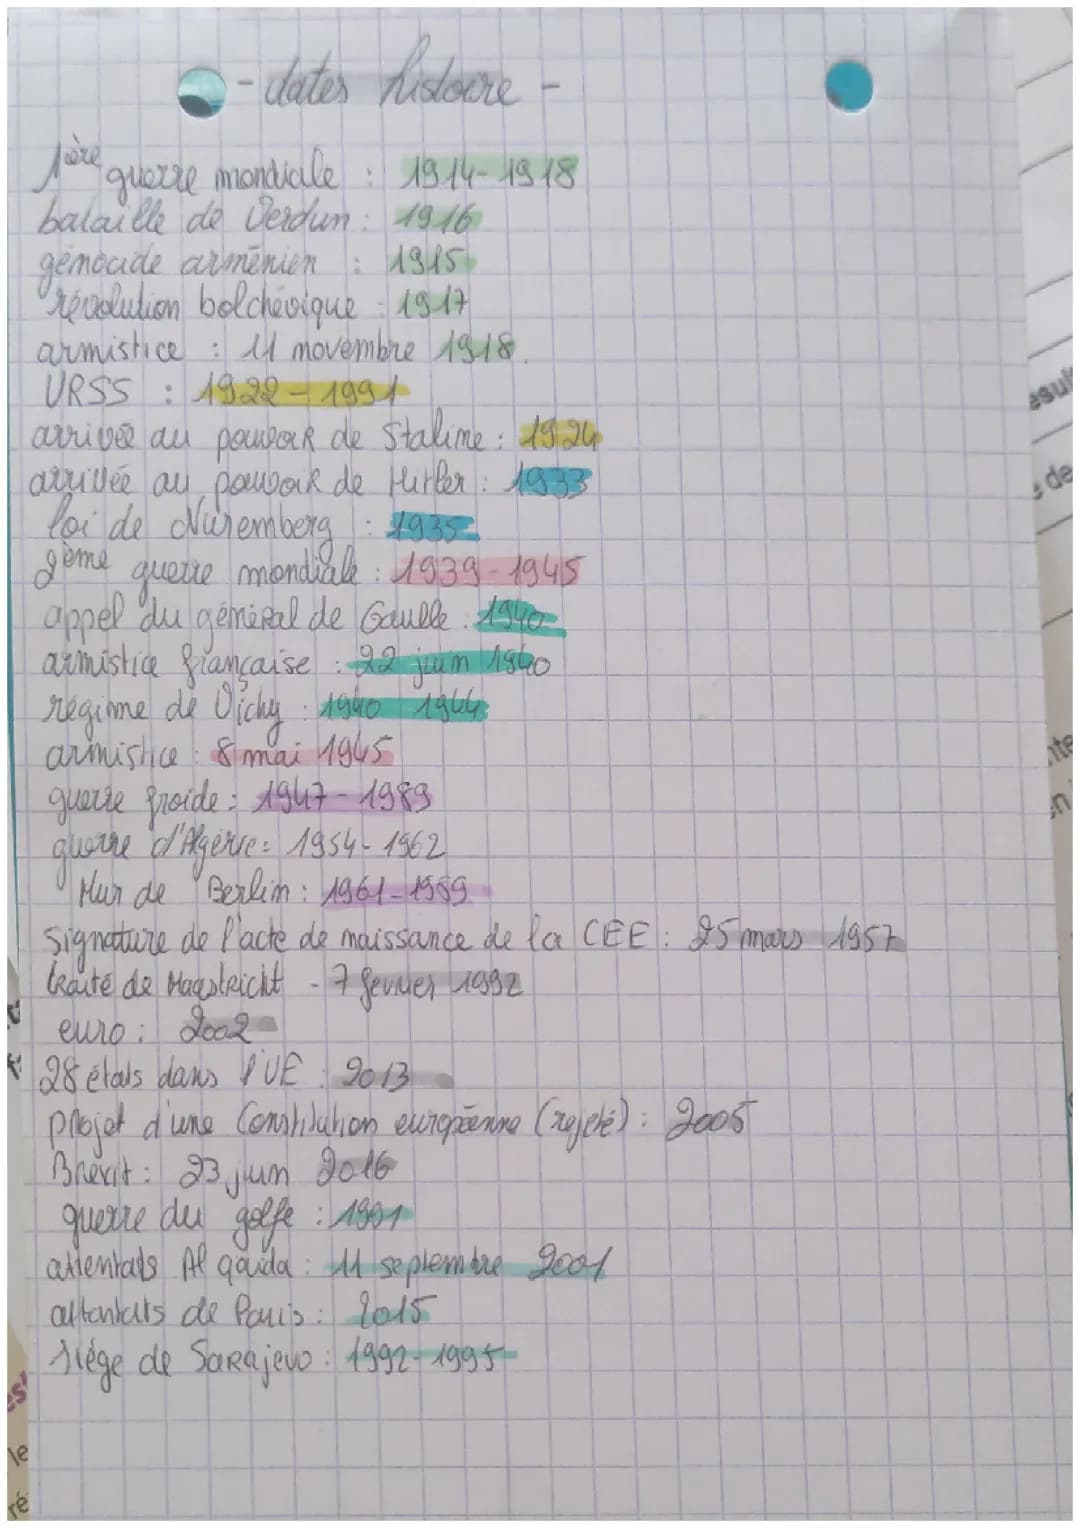 - dates histoire -
1ère guerre mondiale : 1914-1918
bataille de Verdun : 1916
génocide arménien : 1915
révolution bolchévique : 1917
armistice : 11 novembre 1918.
URSS : 1922-1991
arrivée au pouvoir de Staline : 1924
arrivée au pouvoir de Hitler : 1933
loi de Nuremberg : 1935
2ème guerre mondiale : 1939-1945
appel du général de Gaulle : 1940
armistice française : 22 juin 1940
régime de Vichy : 1940 1944
armistice : 8 mai 1945
guerre froide : 1947-1989
guerre d'Algérie : 1954-1962
Mur de Berlin : 1961-1989
Signature de l'acte de naissance de la CEE : 25 mars 1957
traité de Maastricht - 7 février 1992
euro : 2002
28 états dans l'UE : 2013
projet d'une Constitution européenne (rejeté) : 2005
Brexit : 23 juin 2016
guerre du golfe : 1991
attentats Al qaida : 11 septembre 2001
attentats de Paris : 2015
siège de Sarajevo : 1992-1995